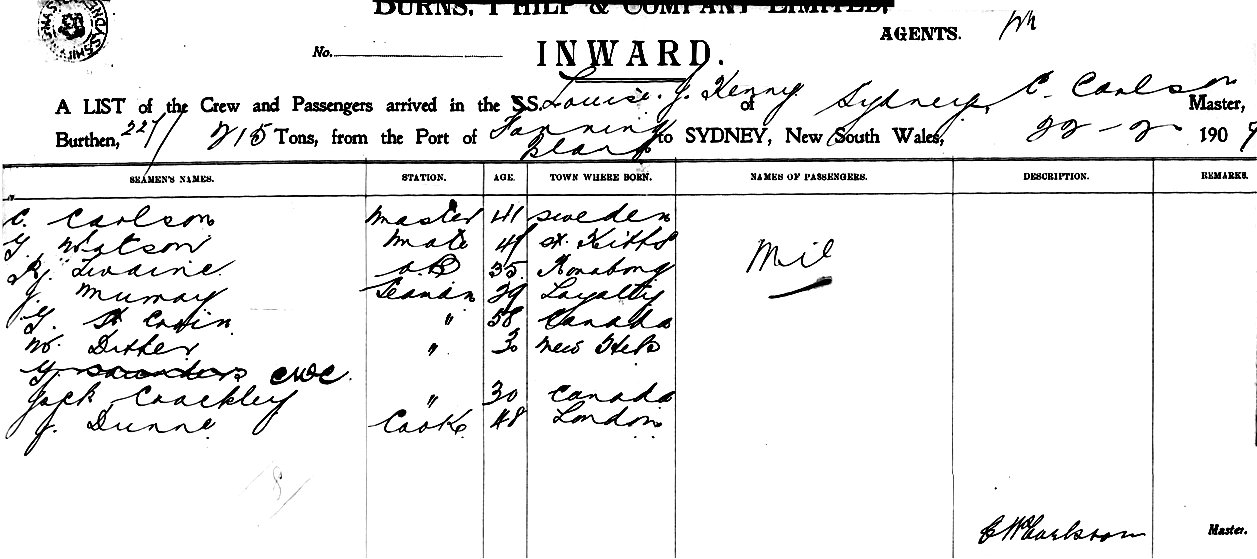 BURNS, PHILP & COMPANY LIMITED.
AGENTS.
No.
INWARD.
A LIST of the Crew and Passengers arrived in the SS. Louise. J. Kenny of Sydney, C. Carlson Master,
Burthen, 227/215 Tons, from the Port of Fanning to SYDNEY, New South Wales, 22-2 190
SEAMEN'S NAMES. STATION. AGE. TOWN WHERE BORN. NAMES OF PASSENGERS. DESCRIPTION. REMARKS.
C. Carlson Master 41 Sweden
Watson Mate St. Kitts Nil
AB 35
J. Murray Seaman 29 Loyalty
" 58 Canada
W. " New Heb
Saunders CWC.
Jack Coackley " 30 Canada
J. Dunne Cook 48 London
8
Master.